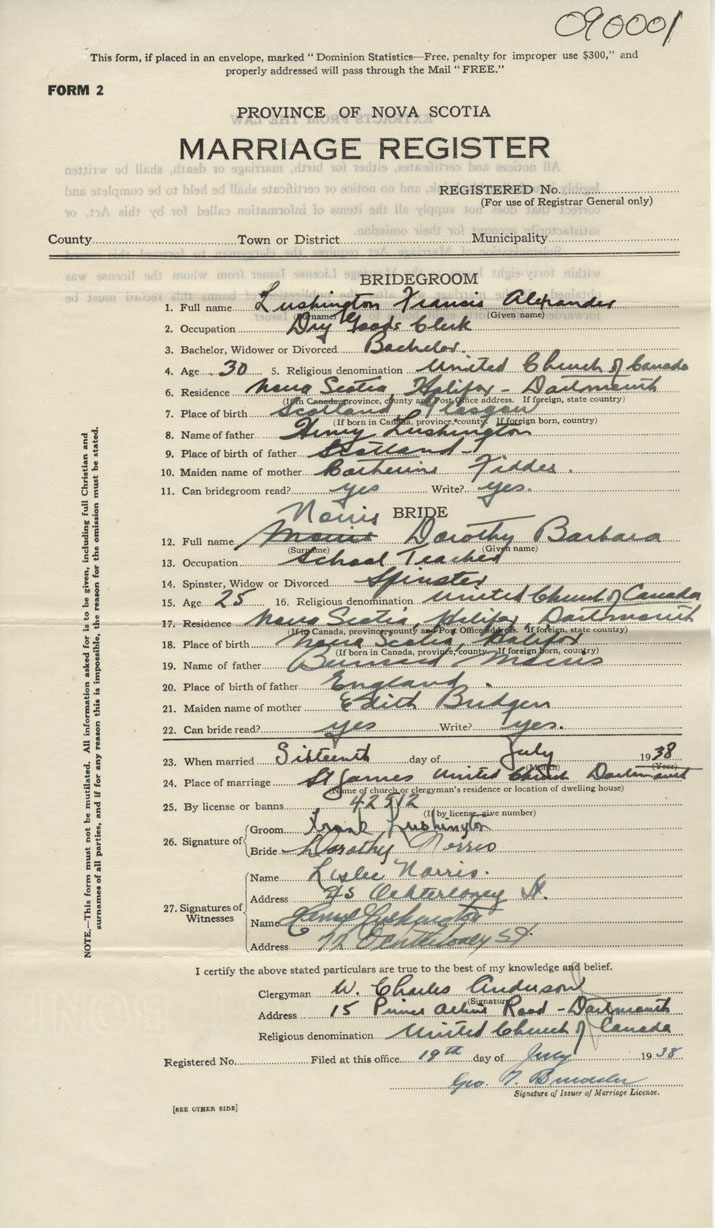 090001
This form, if placed in an envelope, marked "Dominion Statistics—Free, penalty for improper use $300," and
properly addressed will pass through the Mail "FREE."
FORM 2
PROVINCE OF NOVA SCOTIA
MARRIAGE REGISTER
REGISTERED No.
(For use of Registrar General only)
County Town or District Municipality
BRIDEGROOM
1. Full name Lushington Francis Alexander
(Surname) (Given name)
2. Occupation Dry Goods Clerk
3. Bachelor, Widower or Divorced Bachelor.
4. Age 30 5. Religious denomination United Church of Canada
6. Residence Nova Scotia, Halifax - Dartmouth
(If in Canada, province, county and Post Office address. If foreign, state country)
7. Place of birth Scotland Glasgow
(If born in Canada, province, county. If foreign born, country)
8. Name of father Henry Lushington
9. Place of birth of father Scotland
10. Maiden name of mother Catherine Fiddes.
11. Can bridegroom read? yes Write? yes.
Norris
BRIDE
12. Full name Dorothy Barbara
(Surname) (Given name)
13. Occupation School Teacher
14. Spinster, Widow or Divorced Spinster
15. Age 25 16. Religious denomination United Church of Canada
17. Residence Nova Scotia, Halifax, Dartmouth
(If in Canada, province, county and Post Office address. If foreign, state country)
18. Place of birth Nova Scotia, Halifax
(If born in Canada, province, county. If foreign born, country)
19. Name of father Bernard
20. Place of birth of father England.
21. Maiden name of mother Edith
22. Can bride read? yes Write? yes.
23. When married Sixteenth day of July 1938
(Month) (Year)
24. Place of marriage St James United Church Dartmouth
(Name of church or clergyman's residence or location of dwelling house)
25. By license or banns 42512
(If by license, give number)
26. Signature of
Groom Frank Lushington
Bride Dorothy Norris
27. Signatures of Witnesses
Name Leslie Norris.
Address Ochterloney St.
Name Lushington
Address 72 Ochterloney St.
I certify the above stated particulars are true to the best of my knowledge and belief.
Clergyman W. Charles Anderson
(Signature)
Address 15 Prince Arthur Road - Dartmouth
Religious denomination United Church of Canada
Registered No. Filed at this office 19th day of July 1938
Geo.
Signature of Issuer of Marriage License.
[SEE OTHER SIDE]
NOTE.—This form must not be mutilated. All information asked for is to be given, including full Christian and
surnames of all parties, and if for any reason this is impossible, the reason for the omission must be stated.